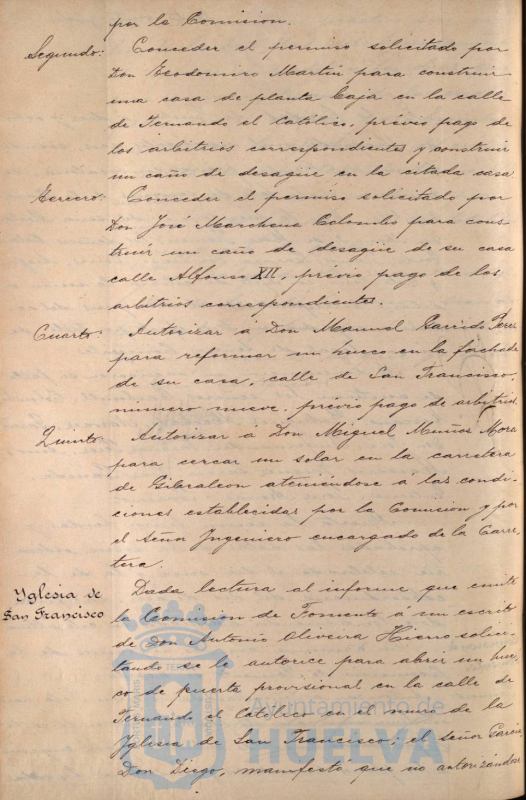 por la Comision.
Segundo: Conceder el permiso solicitado por
Don Teodomiro Martin para construir
una casa de planta baja en la calle
de Fernando el Católico, prévio pago de
los arbitrios correspondientes y construir
un caño de desagüe en la citada casa
Tercero: Conceder el permiso solicitado por
Don José Marchena Colombo para cons-
truir un caño de desagüe de su casa
calle Alfonso XII, prévio pago de los
arbitrios correspondientes.
Cuarto: Autorizar á Don Manuel Garrido Perez
para reformar un hueco en la fachada
de su casa, calle de San Francisco,
numero nueve, prévio pago de arbitrios.
Quinto: Autorizar á Don Miguel Muñoz Mora
para cercar un solar en la carretera
de Gibraleon ateniéndose á las condi-
ciones establecidas por la Comision y por
el Señor Ingeniero encargado de la Carre-
tera.
Yglesia de
San Francisco
Dada lectura al informe que emite
la Comision de Fomento á un escrito
de Don Antonio Oliveira Hierro solici-
tando se le autorice para abrir un hue-
co de puerta provisional en la calle de
Fernando el Católico en el muro de la
Yglesia de San Francisco; el señor Garcia,
Don Diego, manifestó que no autorizándose
Ayuntamiento de
HUELVA